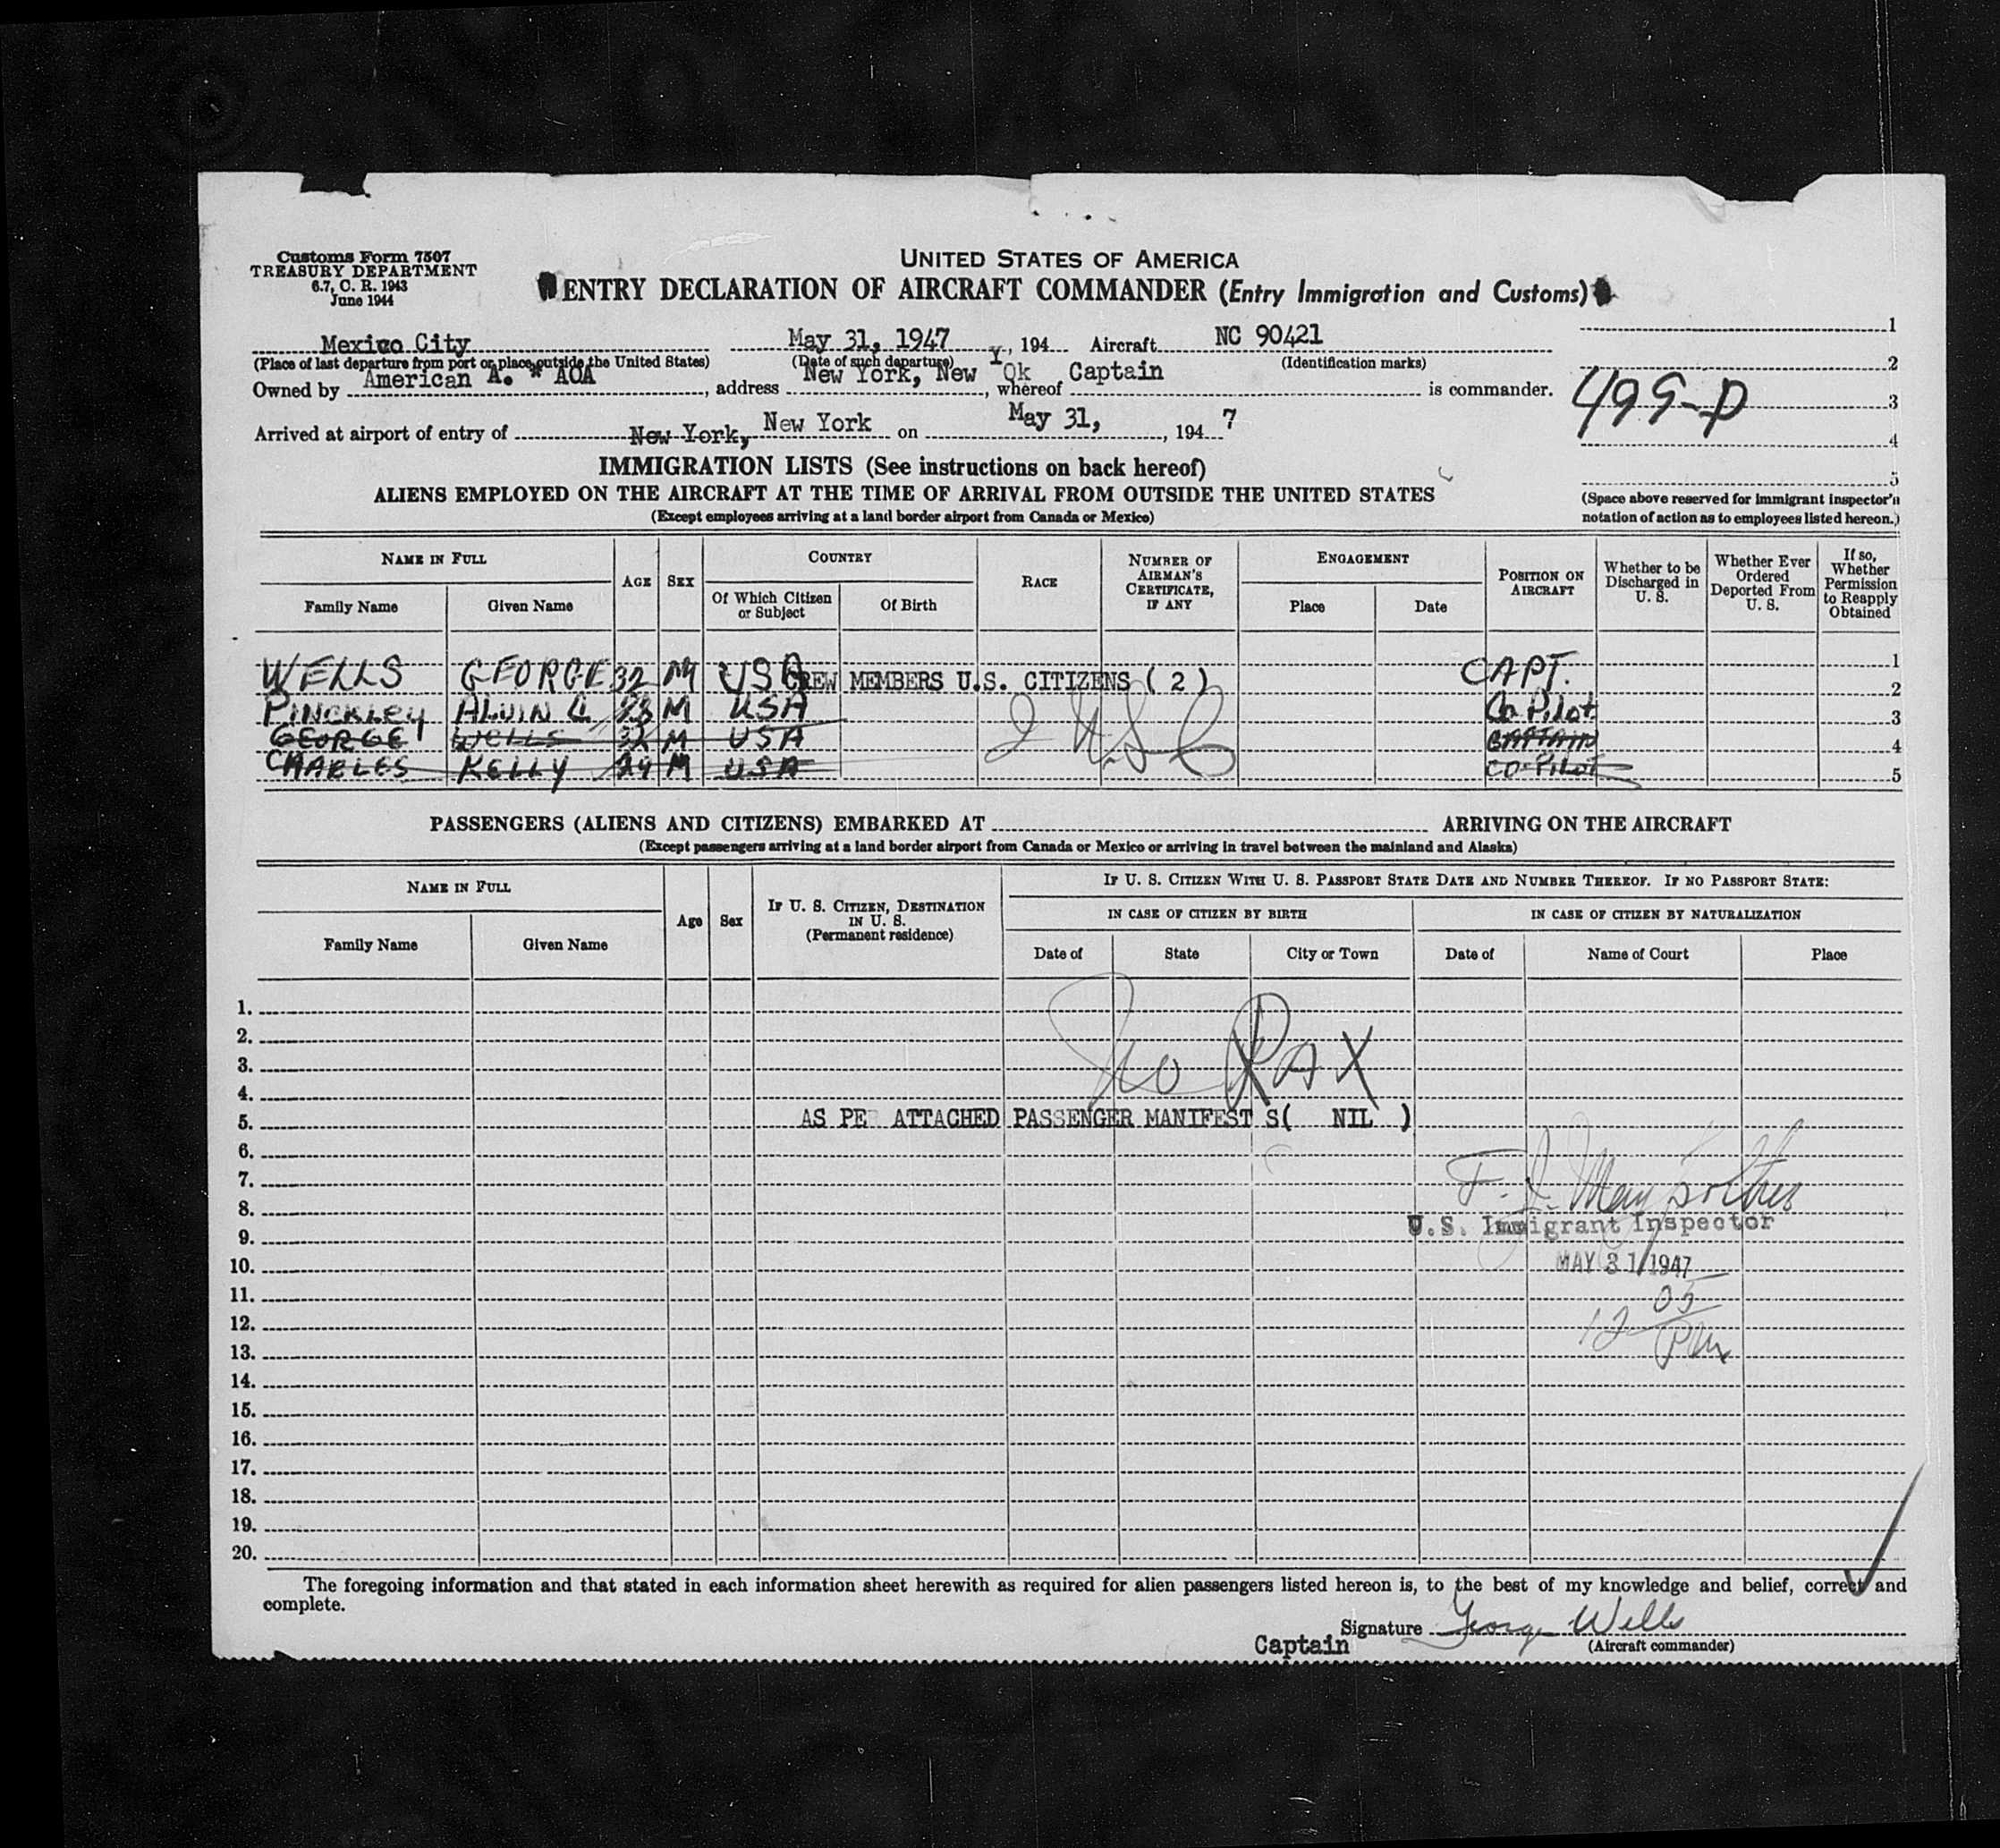 Customs Form 7507
TREASURY DEPARTMENT
6.7, C. R. 1943
June 1944
UNITED STATES OF AMERICA
ENTRY DECLARATION OF AIRCRAFT COMMANDER (Entry Immigration and Customs)
Mexico City May 31, 1947, 194 Aircraft NC 90421 1
(Place of last departure from port or place outside the United States) (Date of such departure) (Identification marks) 2
Owned by American A. * AOA, address New York, New Y Ok, whereof Captain is commander. 499-D 3
Arrived at airport of entry of New York, New York on May 31, 1947 4
IMMIGRATION LISTS (See instructions on back hereof) 5
ALIENS EMPLOYED ON THE AIRCRAFT AT THE TIME OF ARRIVAL FROM OUTSIDE THE UNITED STATES
(Except employees arriving at a land border airport from Canada or Mexico)
(Space above reserved for immigrant inspector's
notation of action as to employees listed hereon.)
NAME IN FULL AGE SEX COUNTRY RACE NUMBER OF AIRMAN'S CERTIFICATE, IF ANY ENGAGEMENT POSITION ON AIRCRAFT Whether to be Discharged in U. S. Whether Ever Ordered Deported From U. S. If so, Whether Permission to Reapply Obtained
Family Name Given Name Of Which Citizen or Subject Of Birth Place Date
WELLS GEORGE 32 M USA CAPT. 1
CREW MEMBERS U.S. CITIZENS ( 2 ) 2
PINCKLEY ALVIN M USA Co Pilot 3
GEORGE WELLS 32 M USA CAPTAIN 4
CHARLES KELLY 24 M USA CO-PILOT 5
PASSENGERS (ALIENS AND CITIZENS) EMBARKED AT ARRIVING ON THE AIRCRAFT
(Except passengers arriving at a land border airport from Canada or Mexico or arriving in travel between the mainland and Alaska)
NAME IN FULL Age Sex IF U. S. CITIZEN, DESTINATION IN U. S. (Permanent residence) IF U. S. CITIZEN WITH U. S. PASSPORT STATE DATE AND NUMBER THEREOF. IF NO PASSPORT STATE:
IN CASE OF CITIZEN BY BIRTH IN CASE OF CITIZEN BY NATURALIZATION
Family Name Given Name Date of State City or Town Date of Name of Court Place
1.
2.
3. No PAX
4.
5. AS PER ATTACHED PASSENGER MANIFEST S( NIL )
6.
7.
8.
9. U.S. Immigrant Inspector
10. MAY 31 1947
11.
12. 12 05
13. PM
14.
15.
16.
17.
18.
19.
20.
The foregoing information and that stated in each information sheet herewith as required for alien passengers listed hereon is, to the best of my knowledge and belief, correct and
complete.
Signature George Wells
Captain (Aircraft commander)